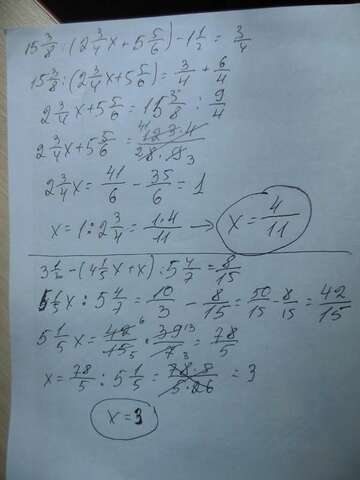 15 3/8 : (2 3/4 x + 5 5/6) - 1 1/2 = 3/4
15 3/8 : (2 3/4 x + 5 5/6) = 3/4 + 6/4
2 3/4 x + 5 5/6 = 15 3/8 : 9/4
2 3/4 x + 5 5/6 = 123·4/8·9
2 3/4 x = 41/6 - 35/6 = 1
x = 1 : 2 3/4 = 1·4/11 → x = 4/11
3 1/2 - (4 1/5 x + x) : 5 4/7 = 8/15
5 1/5 x : 5 4/7 = 10/3 - 8/15 = 50/15 - 8/15 = 42/15
5 1/5 x = 42/15 · 39/7 = 78/5
x = 78/5 : 5 1/5 = 78·5/5·26 = 3
x = 3